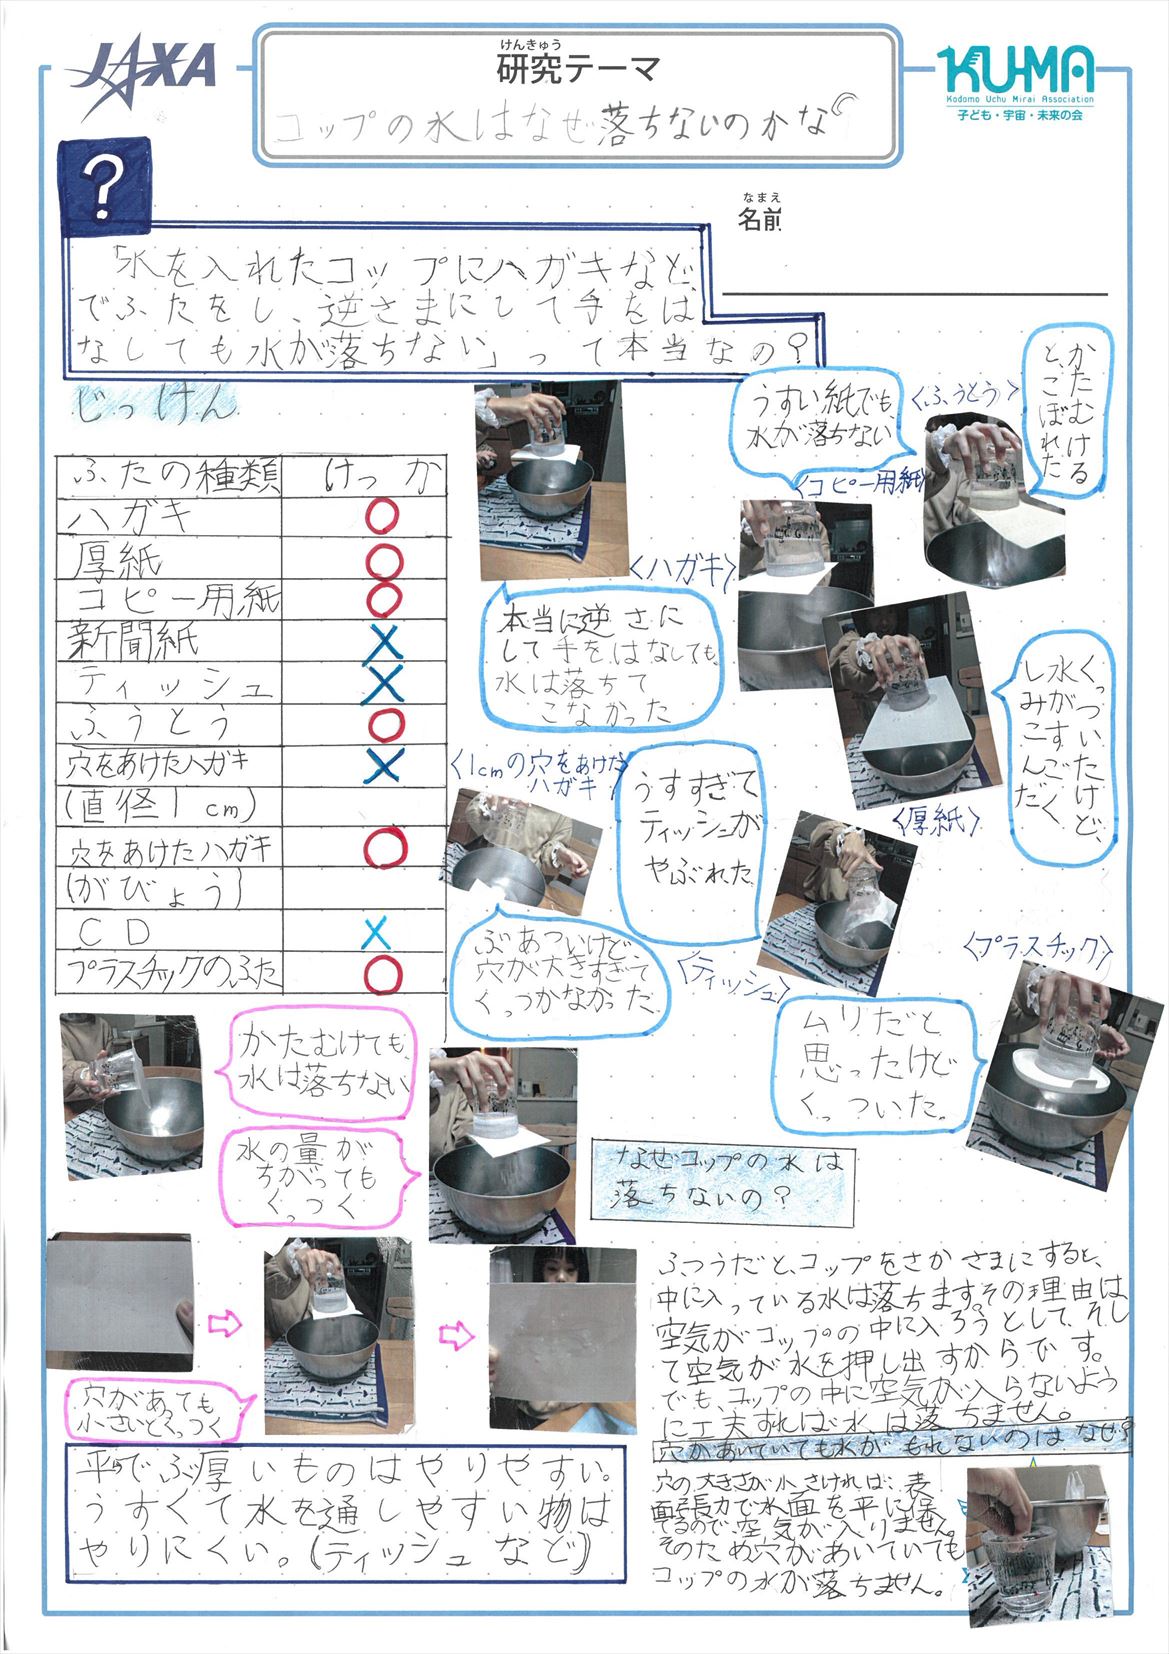 JAXA
けんきゅう
研究テーマ
コップの水はなぜ落ちないのかな
KU-MA
Kodomo Uchu Mirai Association
子ども・宇宙・未来の会
?
なまえ
名前
「水を入れたコップにハガキなど、
でふたをし、逆さまにして手をは
なしても水が落ちない」って本当なの?
じっけん
ふたの種類 けっか
ハガキ ○
厚紙 ○
コピー用紙 ○
新聞紙 ×
ティッシュ ×
ふうとう ○
穴をあけたハガキ ×
(直径1cm)
穴をあけたハガキ ○
(がびょう)
CD ×
プラスチックのふた ○
<ハガキ>
本当に逆さに
して手をはなしても、
水は落ちて
こなかった
うすい紙でも、
水が落ちない
<コピー用紙>
<ふうとう>
かたむける
と、こぼれた
<厚紙>
くっついたけど、
水がすごく
しみこんだ
<1cmの穴をあけた
ハガキ>
ぶあついけど、
穴が大きすぎて
くっつかなかった
うすすぎて
ティッシュが
やぶれた
<ティッシュ>
<プラスチック>
ムリだと
思ったけど
くっついた。
かたむけても、
水は落ちない
水の量が
ちがっても
くっつく
穴があっても
小さいとくっつく
平らでぶ厚いものはやりやすい。
うすくて水を通しやすい物は
やりにくい。(ティッシュなど)
なぜコップの水は
落ちないの?
ふつうだと、コップをさかさまにすると、
中に入っている水は落ちます。その理由は
空気がコップの中に入ろうとして、そし
て空気が水を押し出すからです。
でも、コップの中に空気が入らないよう
に工夫すれば水は落ちません。
穴があいていても水がもれないのはなぜ?
穴の大きさが小さければ、表
面張力で水面を平に保
てるので空気が入りません。
そのため穴があいていても
コップの水が落ちません。